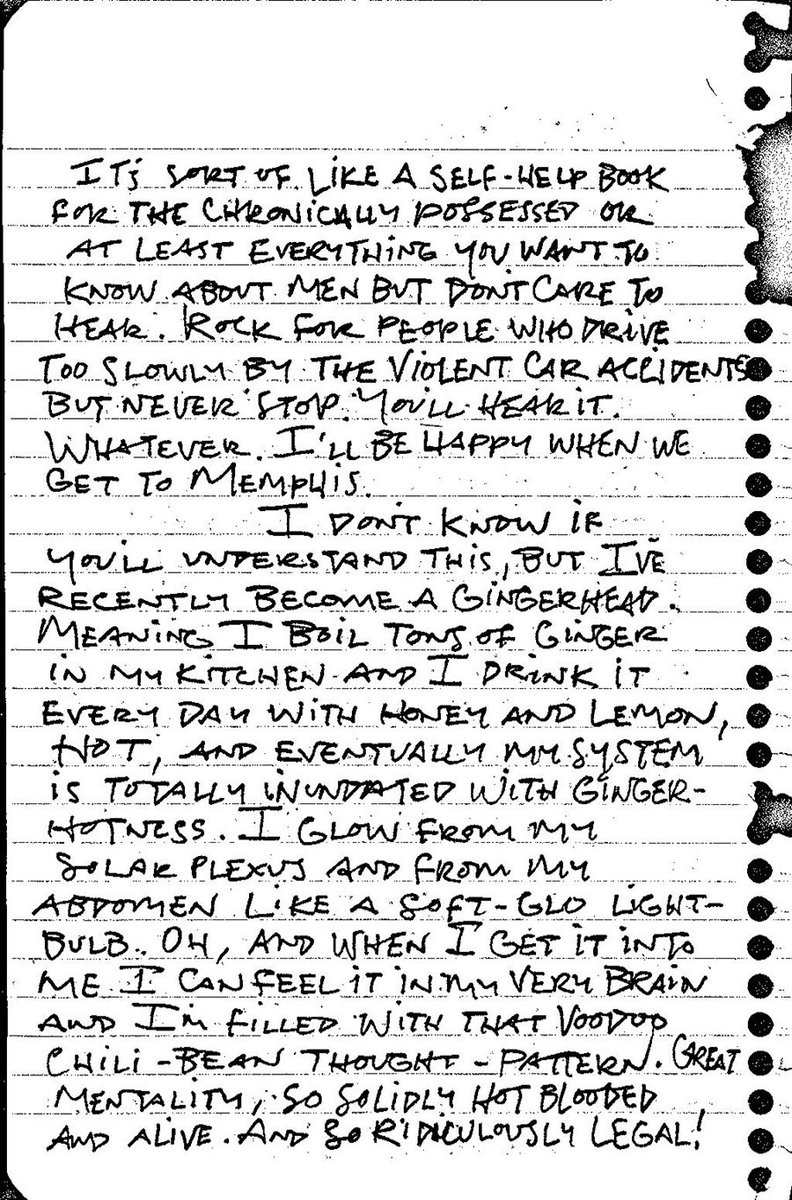 IT'S SORT OF LIKE A SELF-HELP BOOK
FOR THE CHRONICALLY POSSESSED OR
AT LEAST EVERYTHING YOU WANT TO
KNOW ABOUT MEN BUT DON'T CARE TO
HEAR. ROCK FOR PEOPLE WHO DRIVE
TOO SLOWLY BY THE VIOLENT CAR ACCIDENTS
BUT NEVER STOP. YOU'LL HEAR IT.
WHATEVER. I'LL BE HAPPY WHEN WE
GET TO MEMPHIS.
I DON'T KNOW IF
YOU'LL UNDERSTAND THIS, BUT I'VE
RECENTLY BECOME A GINGERHEAD.
MEANING I BOIL TONS OF GINGER
IN MY KITCHEN AND I DRINK IT
EVERY DAY WITH HONEY AND LEMON,
HOT, AND EVENTUALLY MY SYSTEM
IS TOTALLY INUNDATED WITH GINGER-
HOTNESS. I GLOW FROM MY
SOLAR PLEXUS AND FROM MY
ABDOMEN LIKE A SOFT-GLO LIGHT-
BULB. OH, AND WHEN I GET IT INTO
ME I CAN FEEL IT IN MY VERY BRAIN
AND I'M FILLED WITH THAT VOODOO
CHILI-BEAN THOUGHT-PATTERN. GREAT
MENTALITY, SO SOLIDLY HOT BLOODED
AND ALIVE. AND SO RIDICULOUSLY LEGAL!